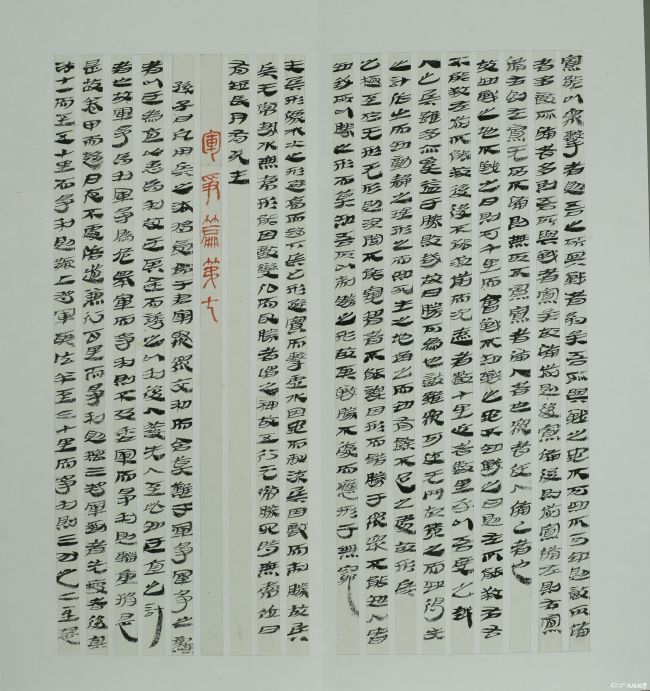 寡能以衆擊者則吾之所與戰者約矣吾所與戰之地不可知不可知則敵所備
者多敵所備者多則吾所與戰者寡矣故備前則後寡備後則前寡備左則右寡
備右則左寡無所不備則無所不寡寡者備人者也衆者使人備己者也
故知戰之地知戰之日則可千里而會戰不知戰之地不知戰之日則左不能救右右
不能救左前不能救後後不能救前而況遠者數十里近者數里乎以吾度之越
人之兵雖多亦奚益于勝敗哉故曰勝可為也敵雖衆可使无鬥故策之而知得失
之計作之而知動靜之理形之而知死生之地角之而知有餘不足之處故形兵
之極至於无形无形則深間不能窺智者不能謀因形而措勝于衆衆不能知人皆
知我所以勝之形而莫知吾所以制勝之形故其戰勝不復而應形于無窮
夫兵形象水水之形避高而趨下兵之形避實而擊虛水因地而制流兵因敵而制勝故兵
兵无常勢水無常形能因敵變化而取勝者謂之神故五行无常勝四時無常位日
有短長月有死生
軍爭篇第七
孫子曰凡用兵之法將受命于君合軍聚衆交和而舍莫難于軍爭軍爭之難
者以迂為直以患為利故迂其途而誘之以利後人發先人至此知迂直之計
者也故軍爭為利軍爭為危舉軍而爭利則不及委軍而爭利則輜重捐
是故卷甲而趨日夜不處倍道兼行百里而爭利則擒三將軍勁者先疲者後其
法十一而至五十里而爭利則蹶上將軍其法半至三十里而爭利則三分之二至是